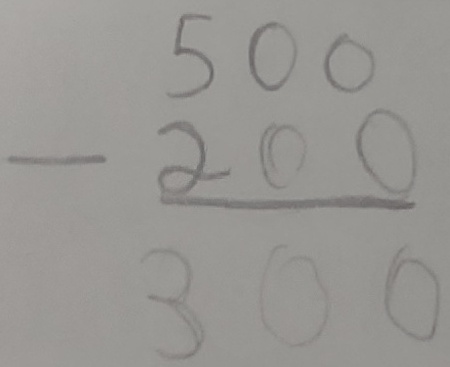 500
- 200
300